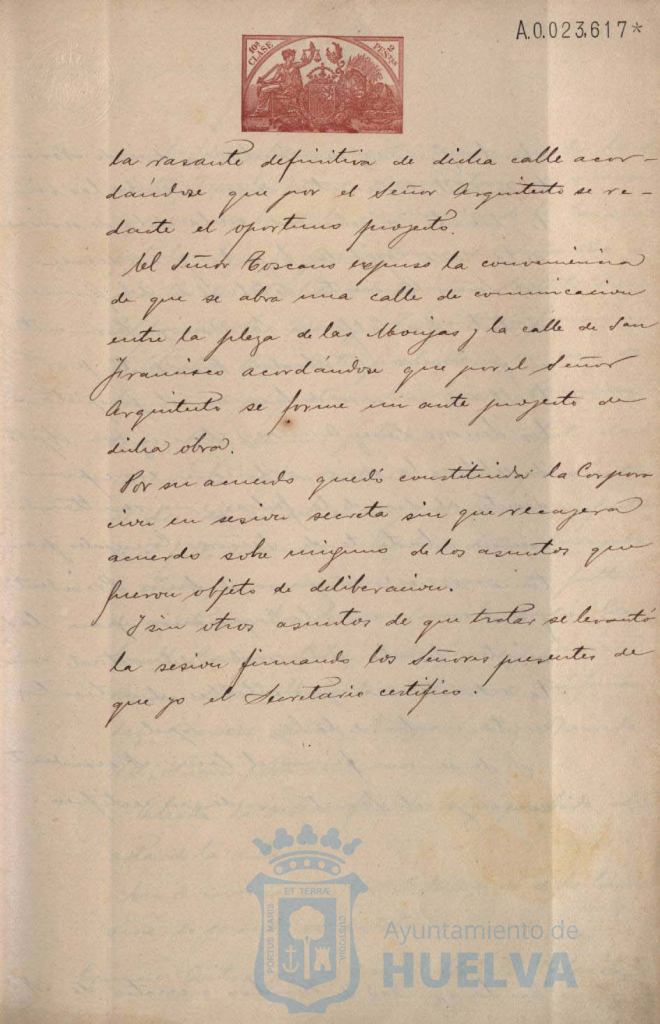 A.0.023,617*
10ª CLASE
2 PESETAS
la rasante definitiva de dicha calle acor-
dándose que por el Señor Arquitecto se re-
dacte el oportuno proyecto.
El Señor Toscano expuso la conveniencia
de que se abra una calle de comunicacion
entre la plaza de las Monjas y la calle de San
Francisco acordándose que por el Señor
Arquitecto se forme un ante proyecto de
dicha obra.
Por su acuerdo quedó constituida la Corpora
cion en sesion secreta sin que recayera
acuerdo sobre ninguno de los asuntos que
fueron objeto de deliberacion.
Y sin otros asuntos de que tratar se levantó
la sesion firmando los Señores presentes de
que yo el Secretario certifico.
ET TERRÆ
PORTUS MARIS
CUSTODIA
Ayuntamiento de
HUELVA